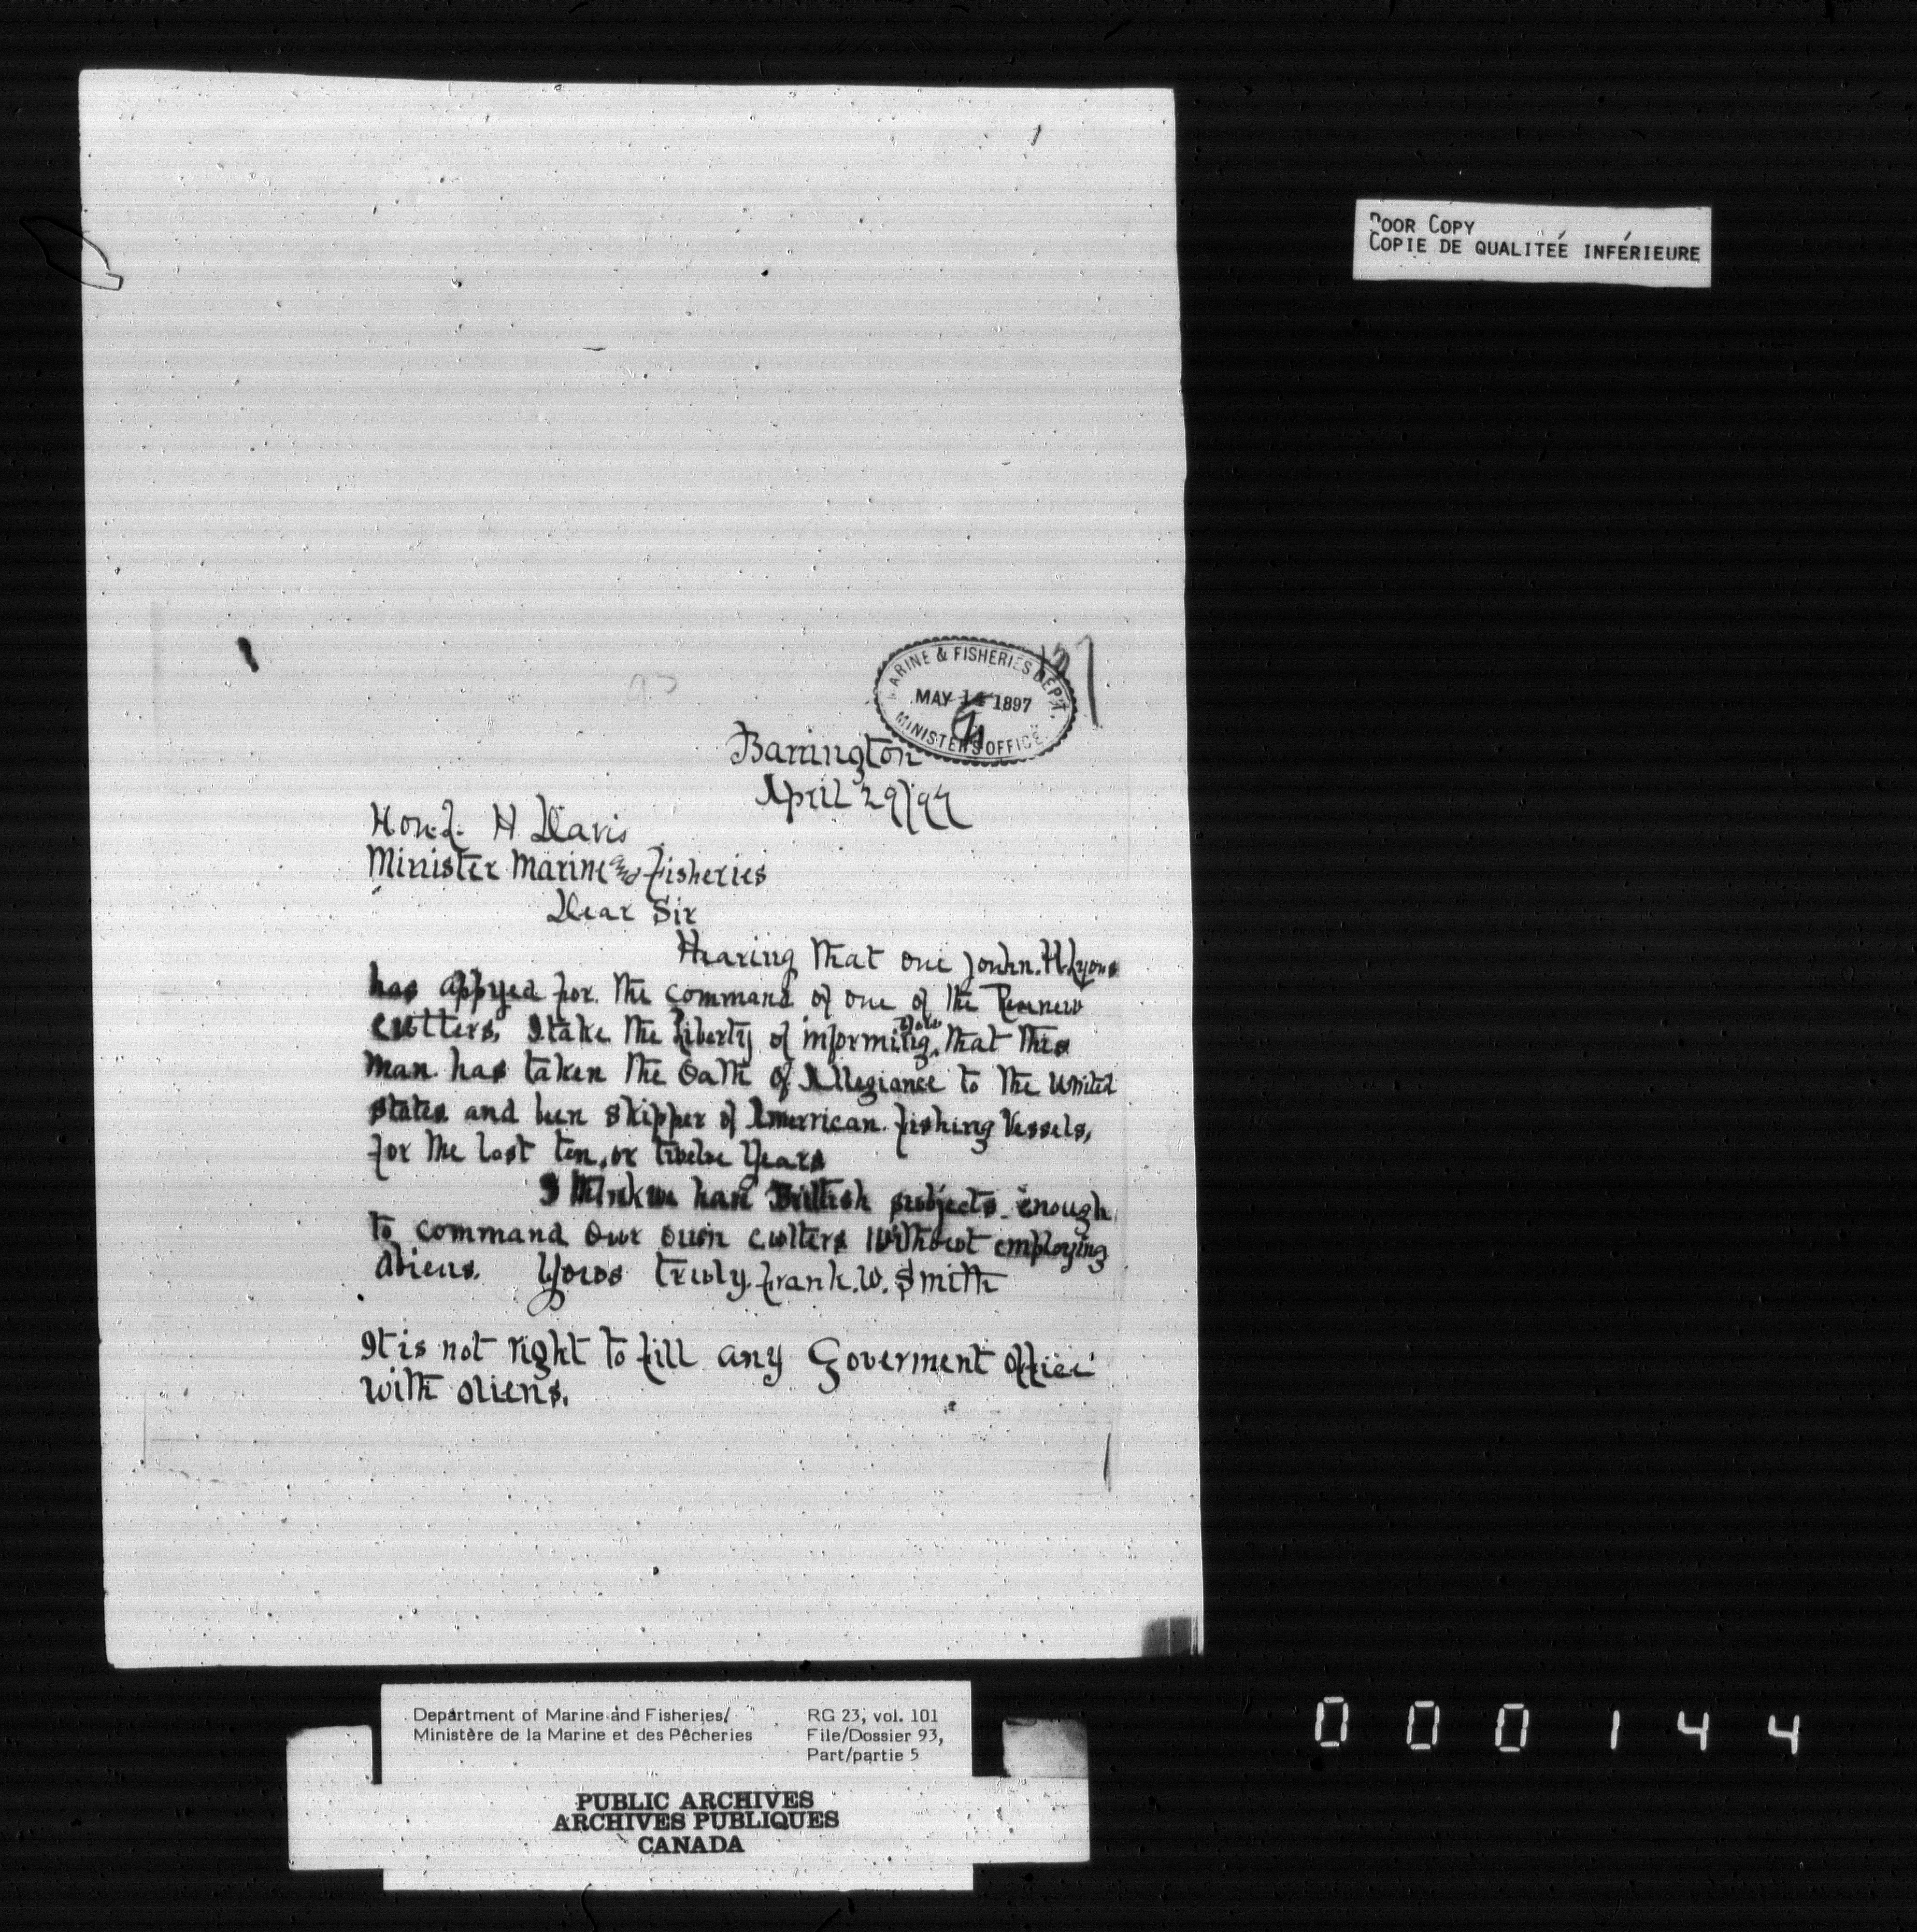 POOR COPY
COPIE DE QUALITEÉ INFÉRIEURE
MARINE & FISHERIES DEPT.
MAY 1897
MINISTER'S OFFICE
93
Barrington
April 29/97
Hon. L. H Davis
Minister Marine and Fisheries
Dear Sir
Hearing that one John. H. Lyons
has appyed for the command of one of the
cutters, I take the Liberty of informing you that this
man has taken the Oath of Allegiance to the United
states and ben skipper of Amerrican fishing Vessels,
for the last ten, or twelve Years
I think we have Brittish subjects enough
to command Our own cutters without employing
aliens. Yours truly. Frank. W. Smith
It is not right to fill any Goverment office
with aliens.
Department of Marine and Fisheries/
Ministère de la Marine et des Pêcheries
RG 23, vol. 101
File/Dossier 93,
Part/partie 5
PUBLIC ARCHIVES
ARCHIVES PUBLIQUES
CANADA
000144